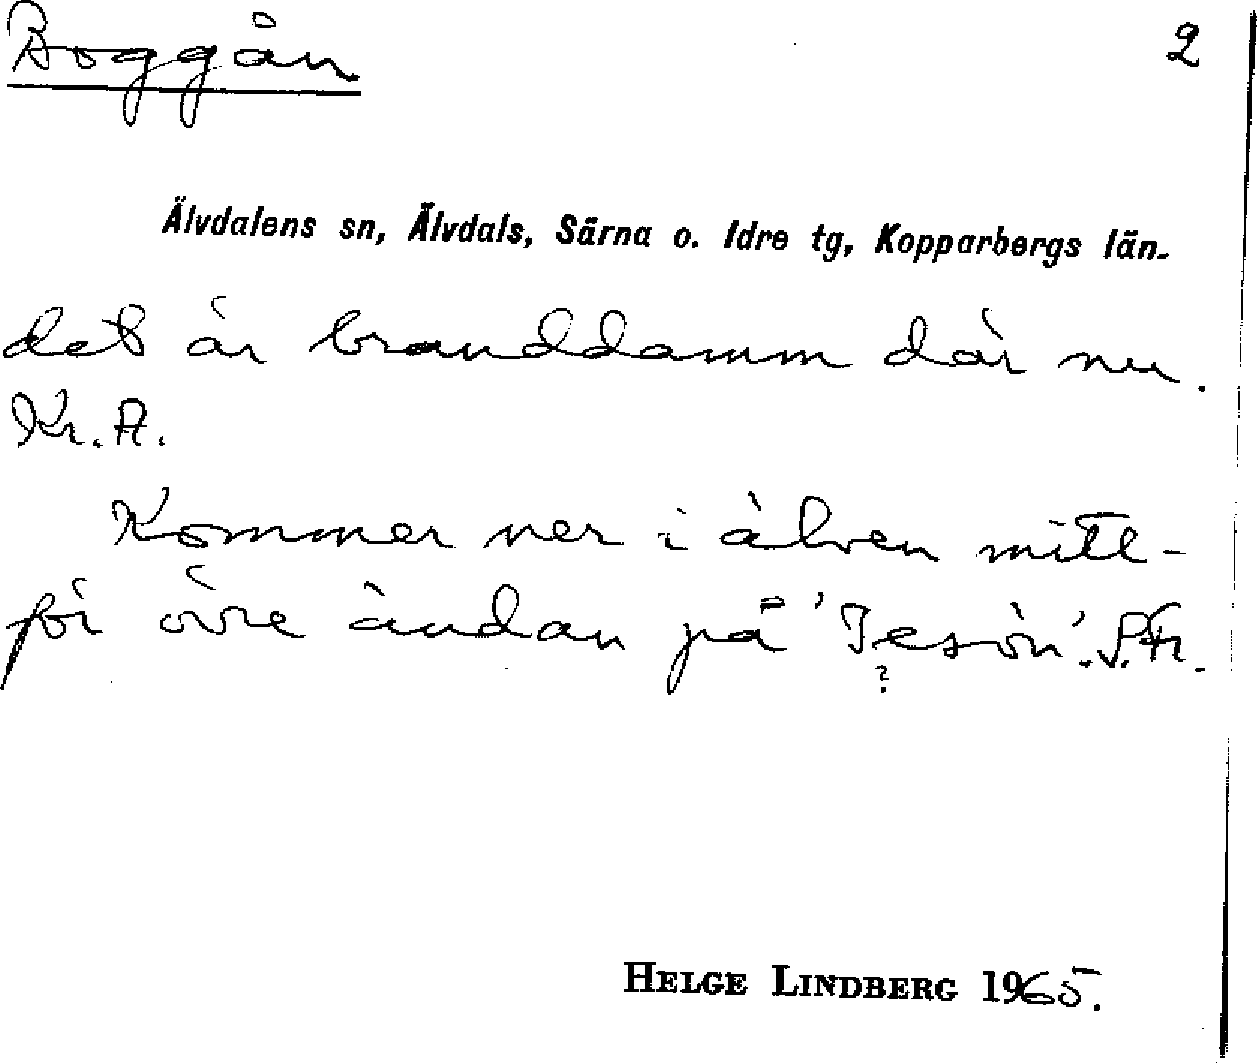 Roggån 2
Älvdalens sn, Älvdals, Särna o. Idre tg, Kopparbergs län.
det är branddamm där nu.
Kr. A.
Kommer ner i älven mitt-
för övre ändan på 'Iesön'.
?
HELGE LINDBERG 1965.